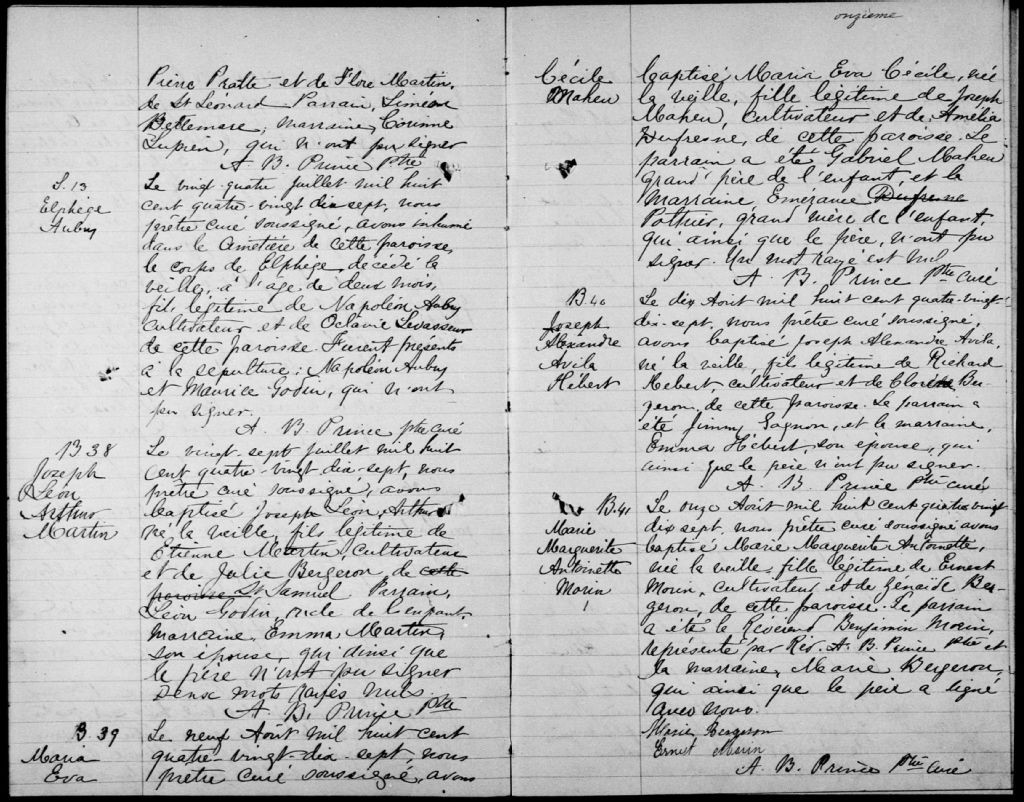 onzième
Pierre Pratte et de Flore Martin,
de St Léonard Parrain, Siméon
Bellemare; marraine, Corinne
Lupien, qui n'ont pu signer
A. B. Prince Ptre
S. 13
Elphège
Aubry
Le vingt-quatre juillet mil huit
cent quatre-vingt dix sept, nous
prêtre curé soussigné, avons inhumé
dans le Cimetière de cette paroisse,
le corps de Elphège, décédé la
veille, à l'age de deux mois,
fils légitime de Napoléon Aubry
Cultivateur et de Octavie Levasseur
de cette paroisse. Furent présents
à la sépulture: Napoléon Aubry
et Maurice Godin, qui n'ont
pu signer.
A. B. Prince ptre curé
B 38
Joseph
Léon
Arthur
Martin
Le vingt-sept juillet mil huit
cent quatre-vingt dix-sept, nous
prêtre curé soussigné, avons
baptisé Joseph Léon, Arthur
né la veille, fils légitime de
Étienne Martin, Cultivateur
et de Julie Bergeron de cette
paroisse, St Samuel Parrain,
Léon Godin, oncle de l'enfant,
Marraine, Emma Martin,
son épouse, qui ainsi que
le père n'ont pu signer
Deux mots rayés nuls.
A. B. Prince Ptre
B 39
Maria
Eva
Le neuf Août mil huit cent
quatre-vingt-dix-sept, nous
prêtre curé soussigné, avons
Cécile
Maheu
baptisé Maria Eva Cécile, née
la veille, fille légitime de Joseph
Maheu, Cultivateur et de Amélia
Dufresne, de cette paroisse. Le
parrain a été Gabriel Maheu
grand'père de l'enfant, et la
Marraine, Emérance Dufresne
Pothier, grand mère de l'enfant,
qui ainsi que le père, n'ont pu
signer. Un mot rayé est nul
A. B. Prince Ptre Curé
B 40
Joseph
Alexandre
Avila
Hébert
Le dix Août mil huit cent quatre-vingt
dix-sept, nous prêtre curé soussigné,
avons baptisé Joseph Alexandre Avila,
né la veille, fils légitime de Richard
Hébert cultivateur et de Ber-
geron, de cette paroisse. Le parrain a
été Jimmy Gagnon, et la marraine,
Emma Hébert, son épouse, qui
ainsi que le père n'ont pu signer.
A. B. Prince Ptre curé
B. 41
Marie
Marguerite
Antoinette
Morin
Le onze Août mil huit cent quatre vingt
dix sept, nous, prêtre curé soussigné avons
baptisé Marie Marguerite Antoinette,
née la veille, fille légitime de Ernest
Morin, cultivateur et de Zénaïde Ber-
geron, de cette paroisse. Le parrain
a été le Révérend Benjamin Morin,
représenté par Rév. A. B. Prince Ptre et
la marraine, Marie Bergeron,
qui ainsi que le père a signé
avec nous.
Marie Bergeron
Ernest Morin
A. B. Prince Ptre curé